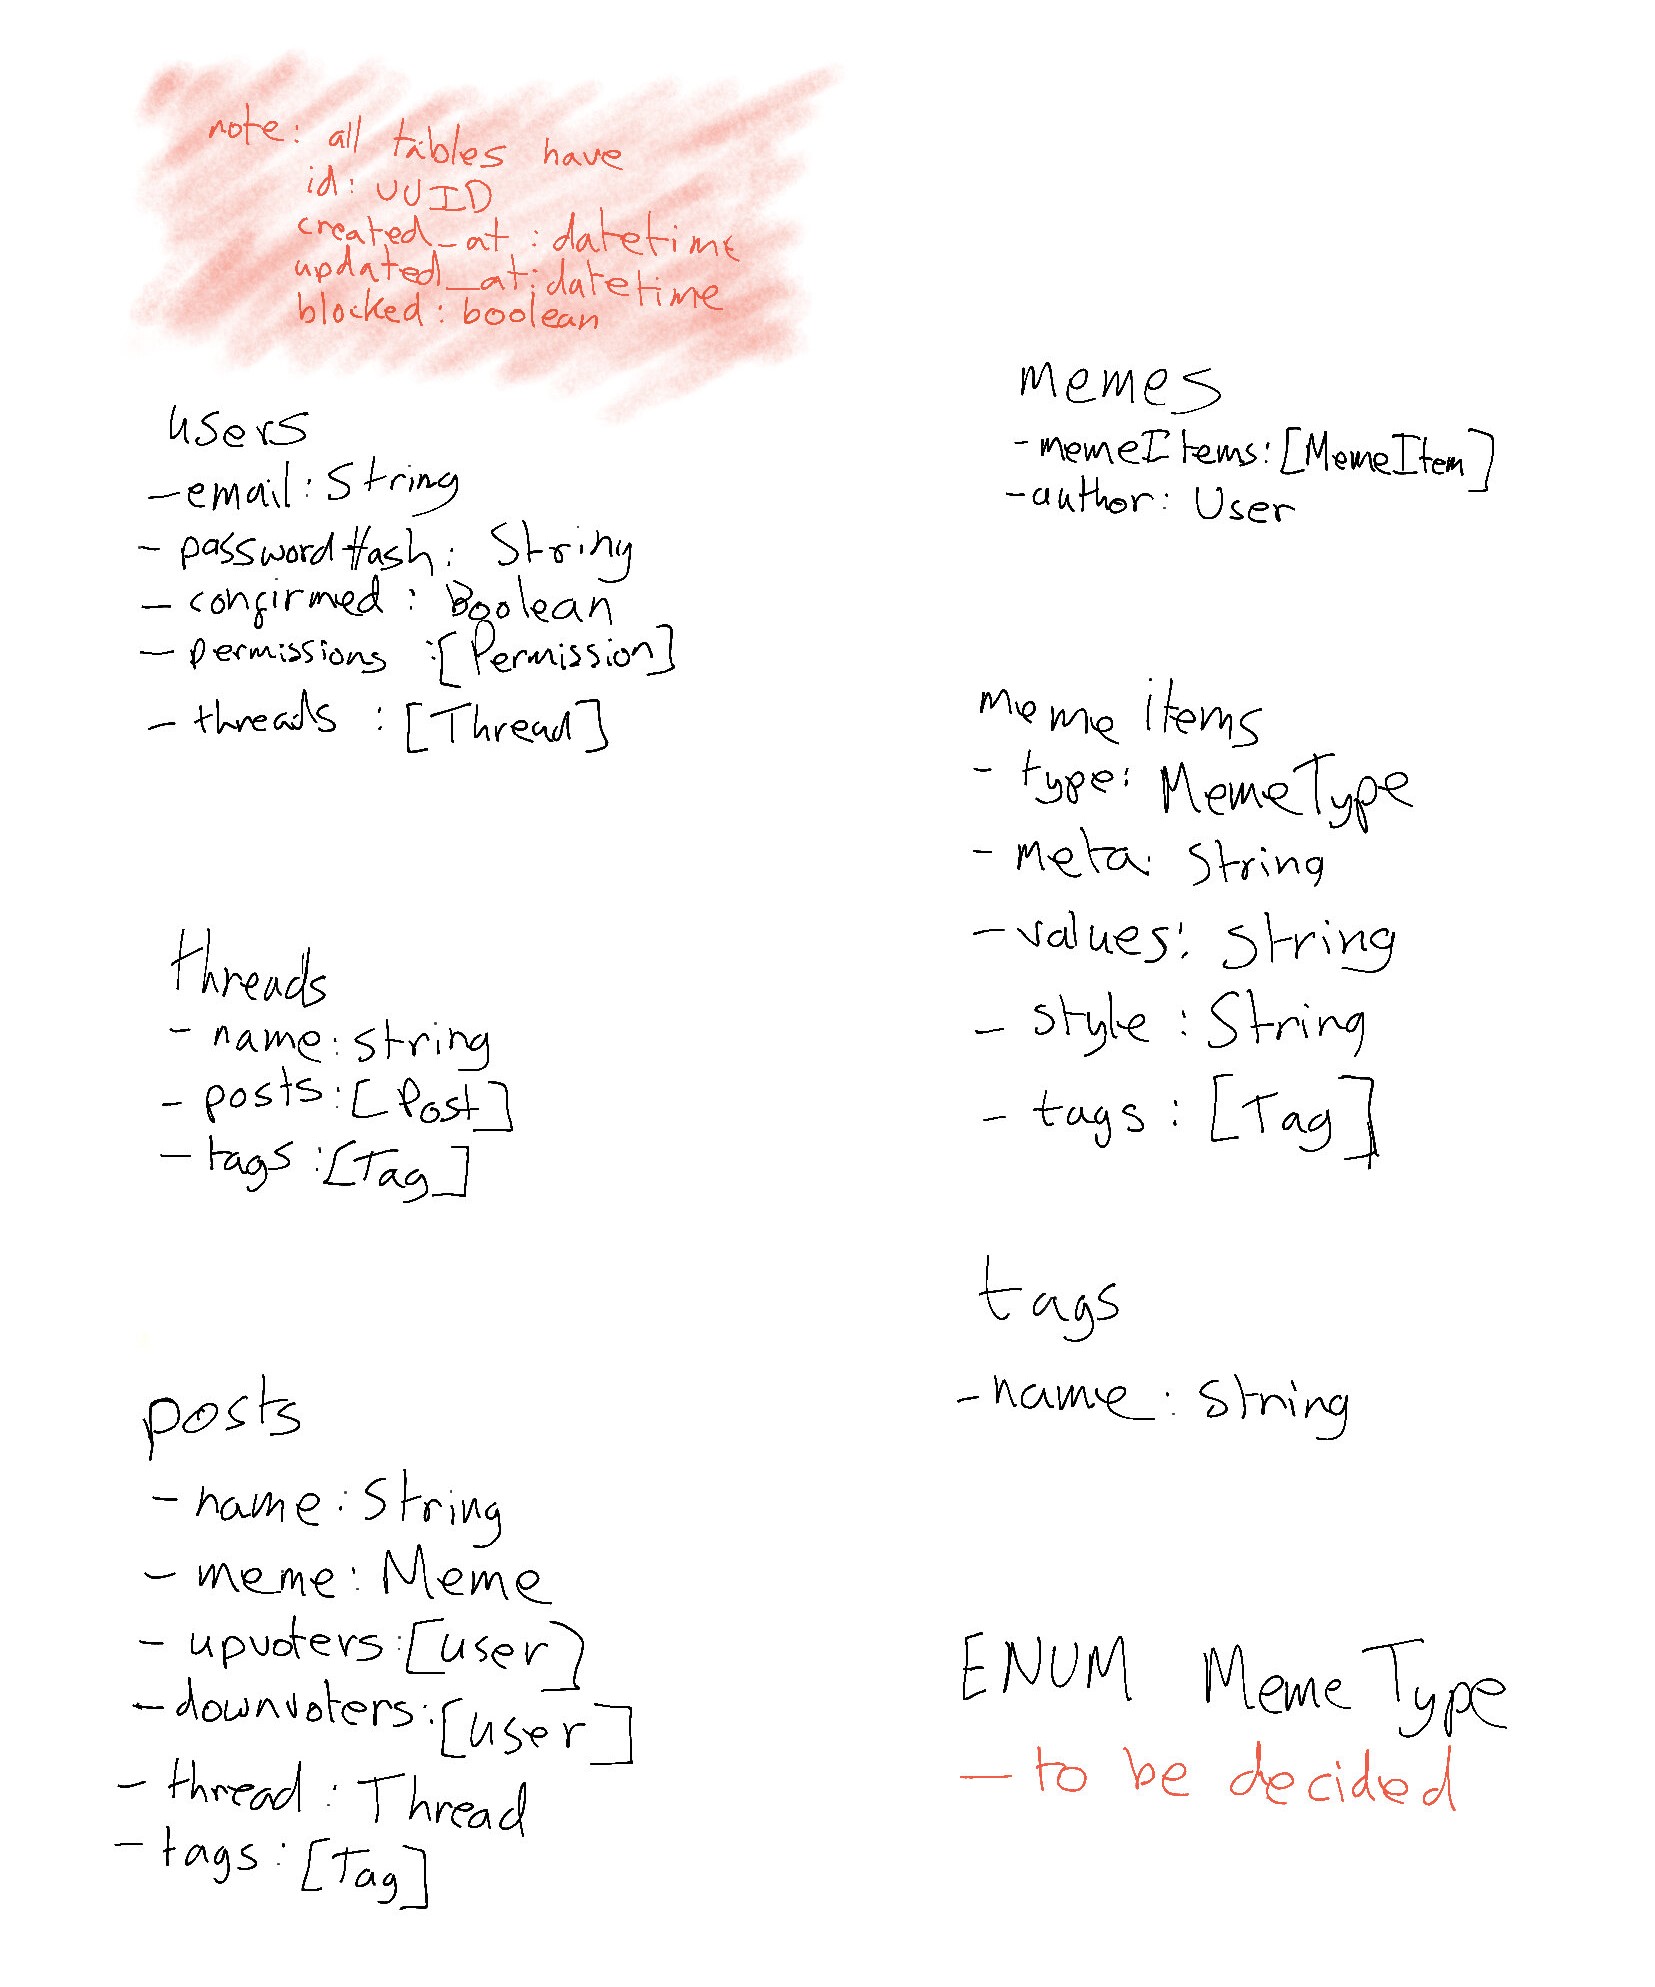 note: all tables have
id: UUID
created_at: datetime
updated_at: datetime
blocked: boolean
users
- email: String
- passwordHash: String
- confirmed: Boolean
- permissions: [Permission]
- threads: [Thread]
threads
- name: string
- posts: [Post]
- tags: [Tag]
posts
- name: String
- meme: Meme
- upvoters: [user]
- downvoters: [user]
- thread: Thread
- tags: [Tag]
memes
- memeItems: [MemeItem]
- author: User
meme items
- type: MemeType
- meta: String
- values: string
- style: String
- tags: [Tag]
tags
- name: string
ENUM MemeType
- to be decided